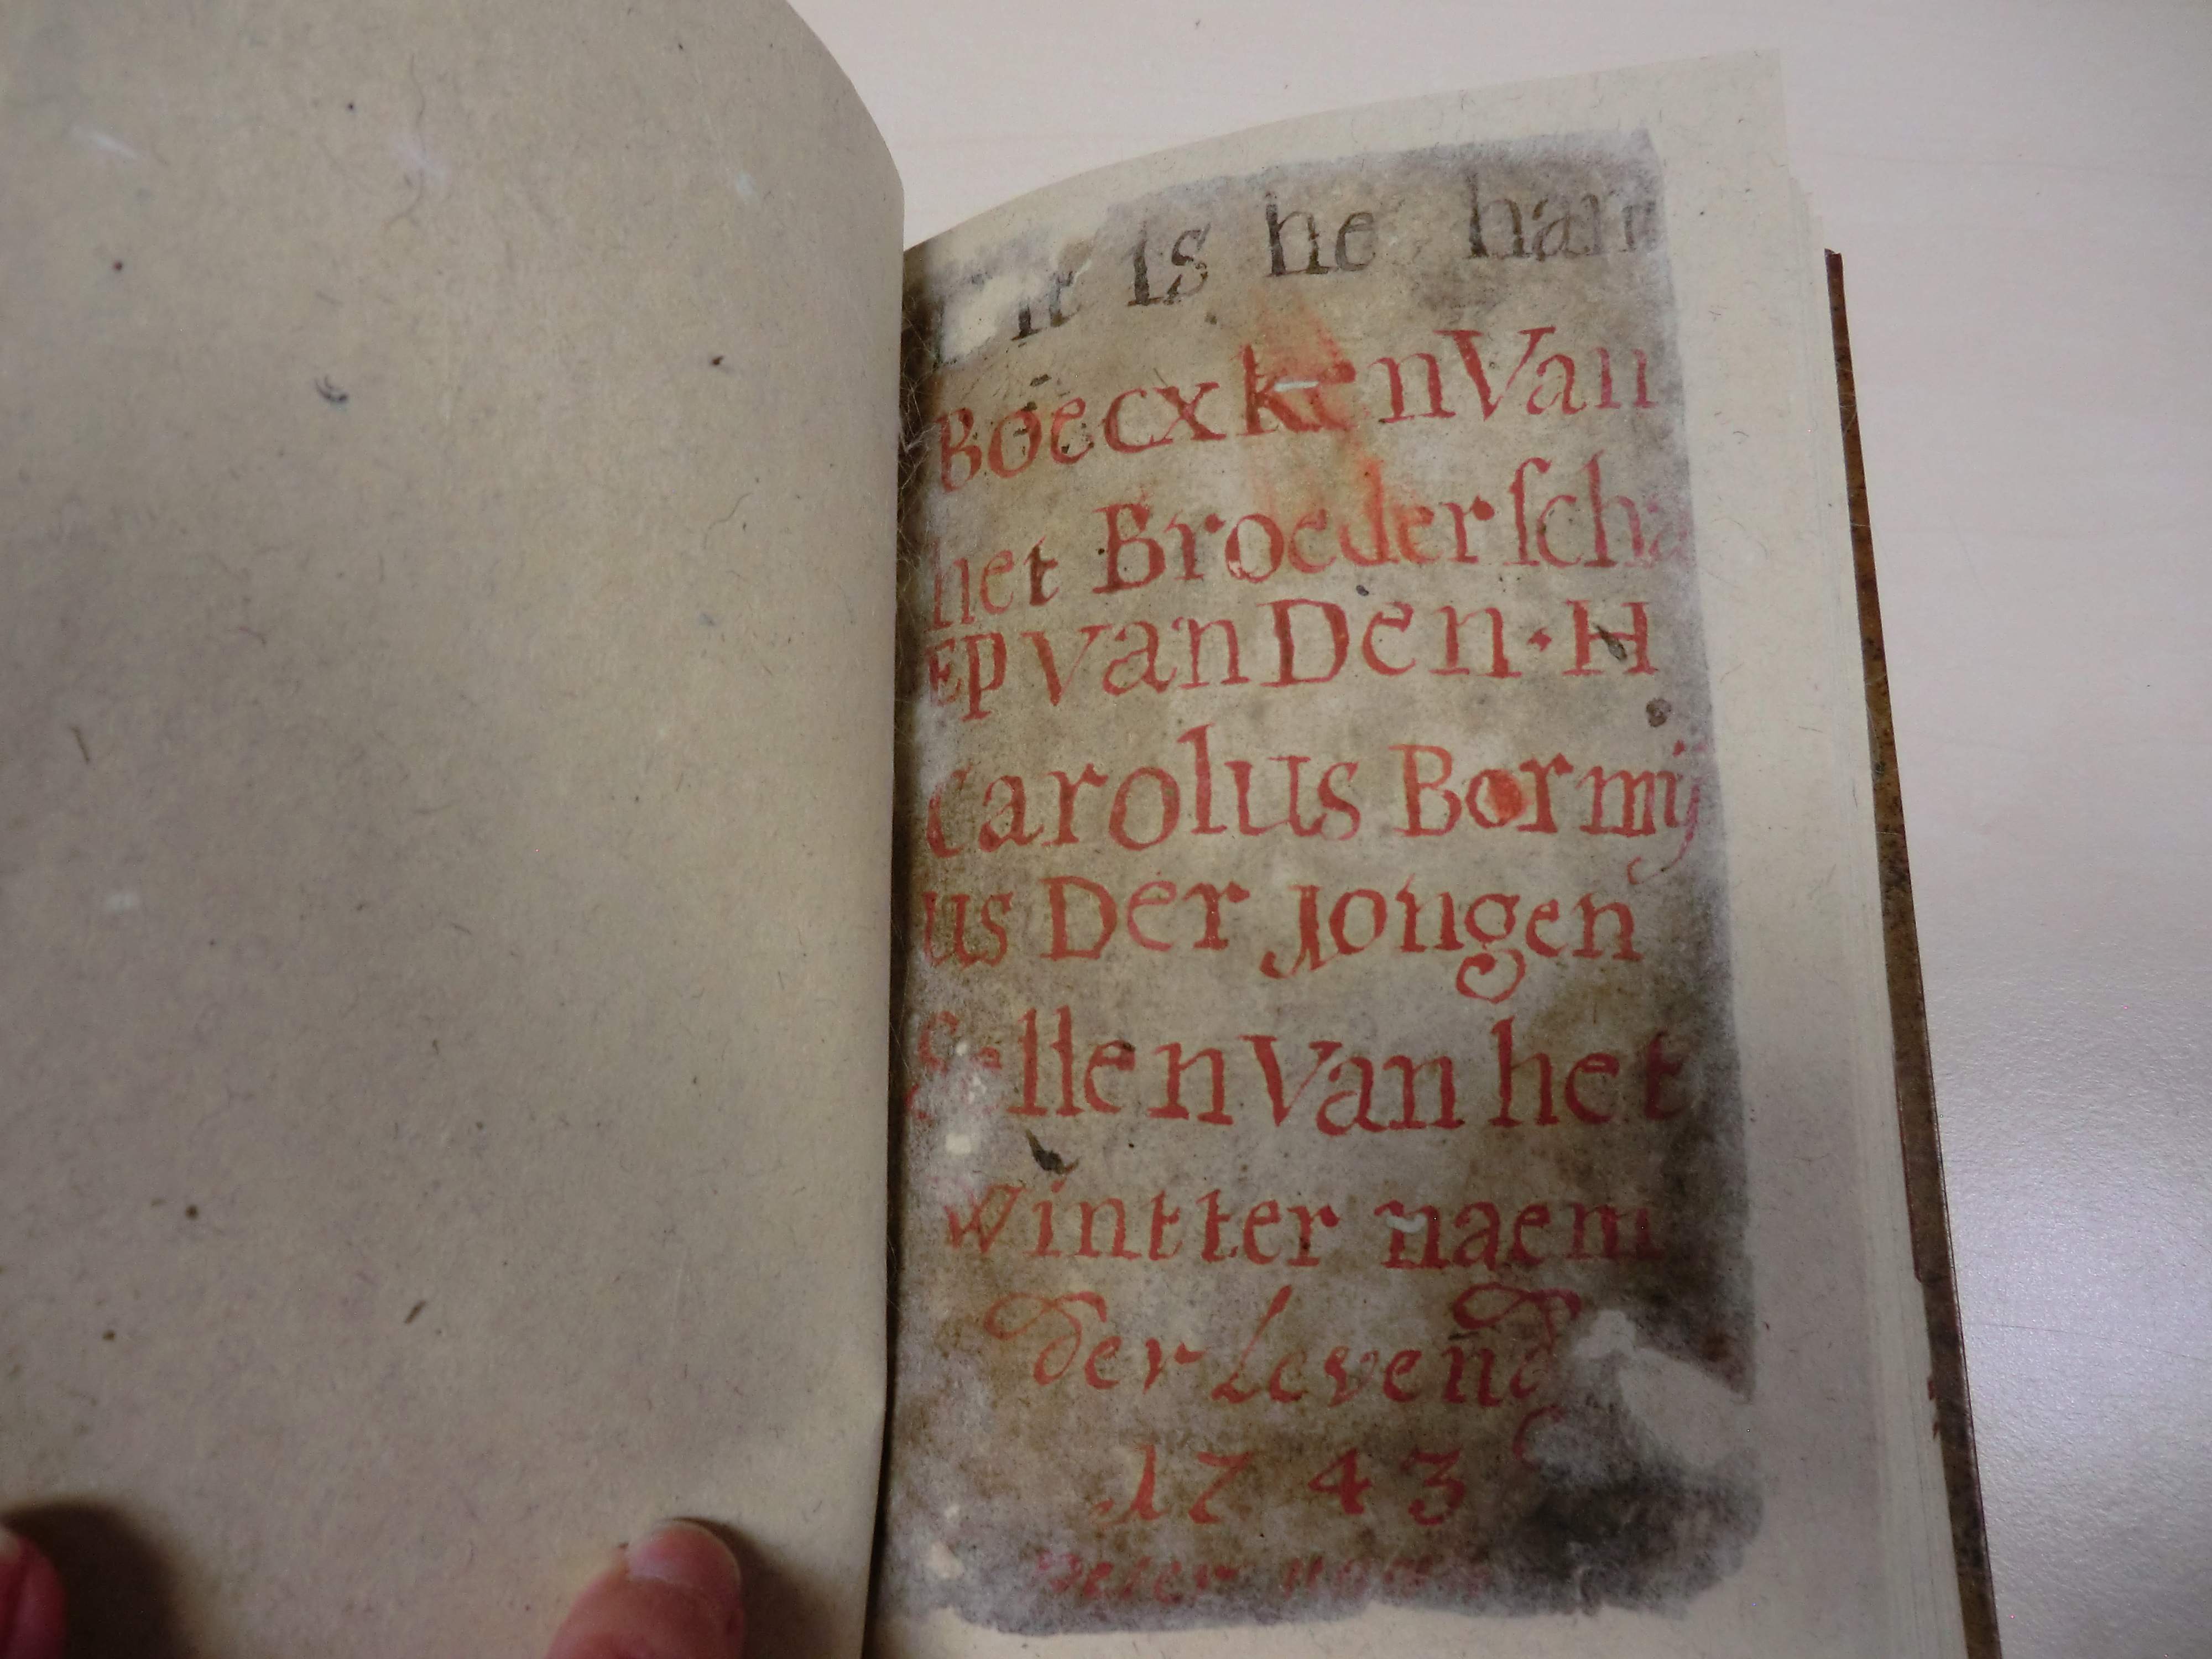 Dit is he han
Boecxken Van
het Broederscha
Ep van Den · H
Carolus Bormij
us Der Jongen
Gellen Van het
Wintter naem
der Levend
1743
Peter